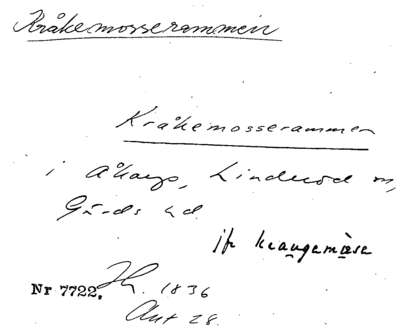 Kråkemosserammen
Kråkemosserammen
i Åkarp, Linderöd sn,
Gärds hd.
jfr kraugamåsa
Nr 7722. Jh. 1836
Ant 28